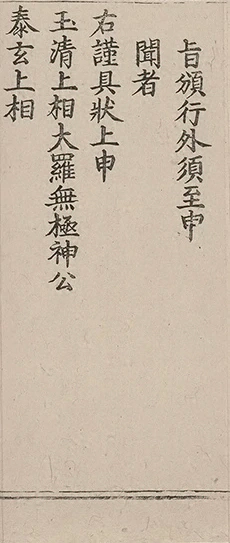 旨頒行外須至申
聞者
右謹具狀上申
玉清上相大羅無極神公
泰玄上相